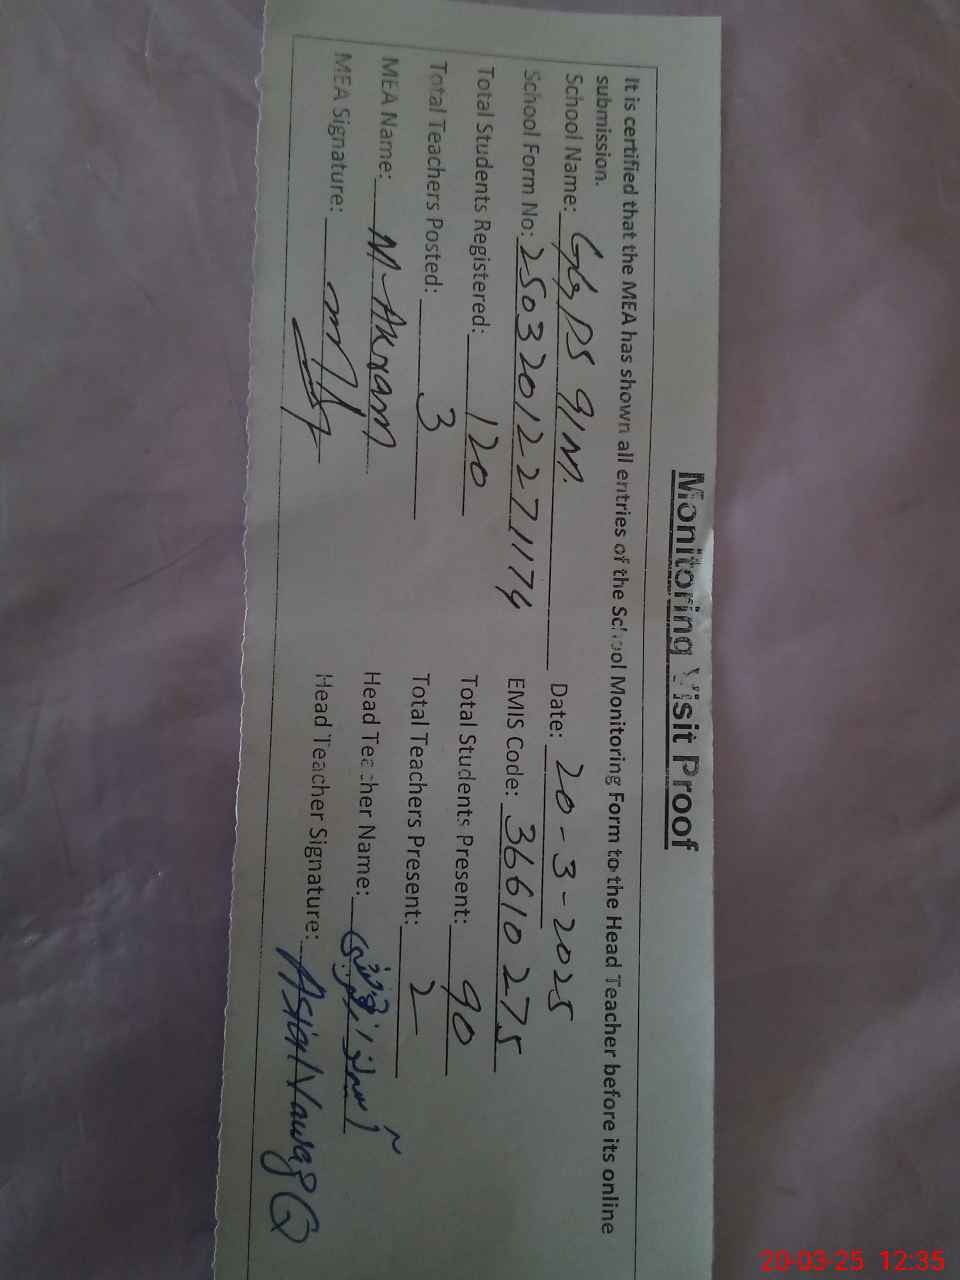 Monitoring Visit Proof
It is certified that the MEA has shown all entries of the School Monitoring Form to the Head Teacher before its online
submission.
School Name: GGPS 9/M. Date: 20-3-2025
School Form No: 2503201227 1174 EMIS Code: 36610275
Total Students Registered: 120 Total Students Present: 90
Total Teachers Posted: 3 Total Teachers Present: 2
MEA Name: M. Akram Head Teacher Name:
MEA Signature: Head Teacher Signature:
20-03-25 12:35